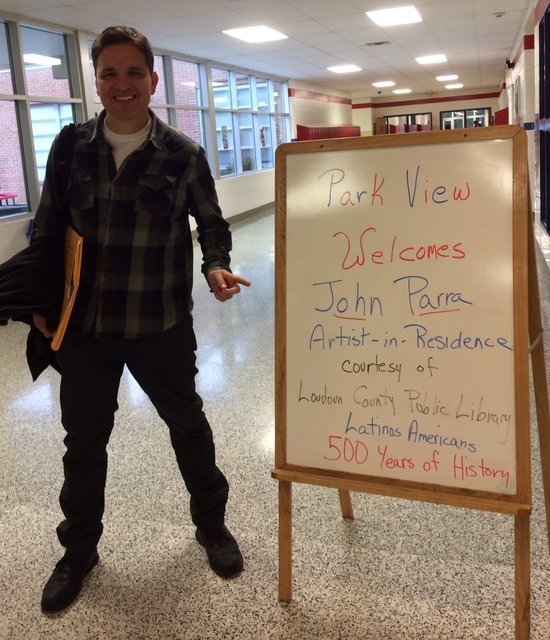 Park View
Welcomes
John Parra
Artist-in-Residence
courtesy of
Loudoun County Public Library
Latinos Americans
500 Years of History